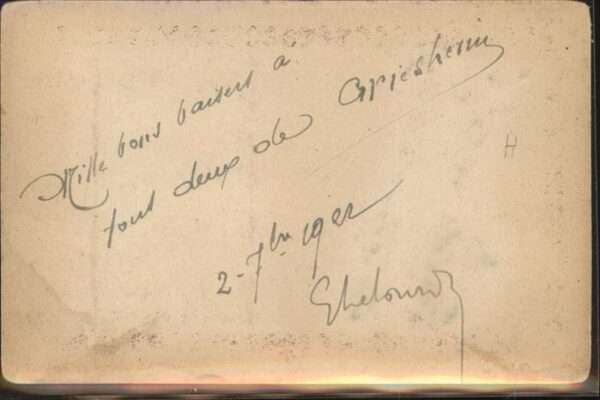 Mille bons baisers à
tout deux de Griesheim
2-7bre 1922
H